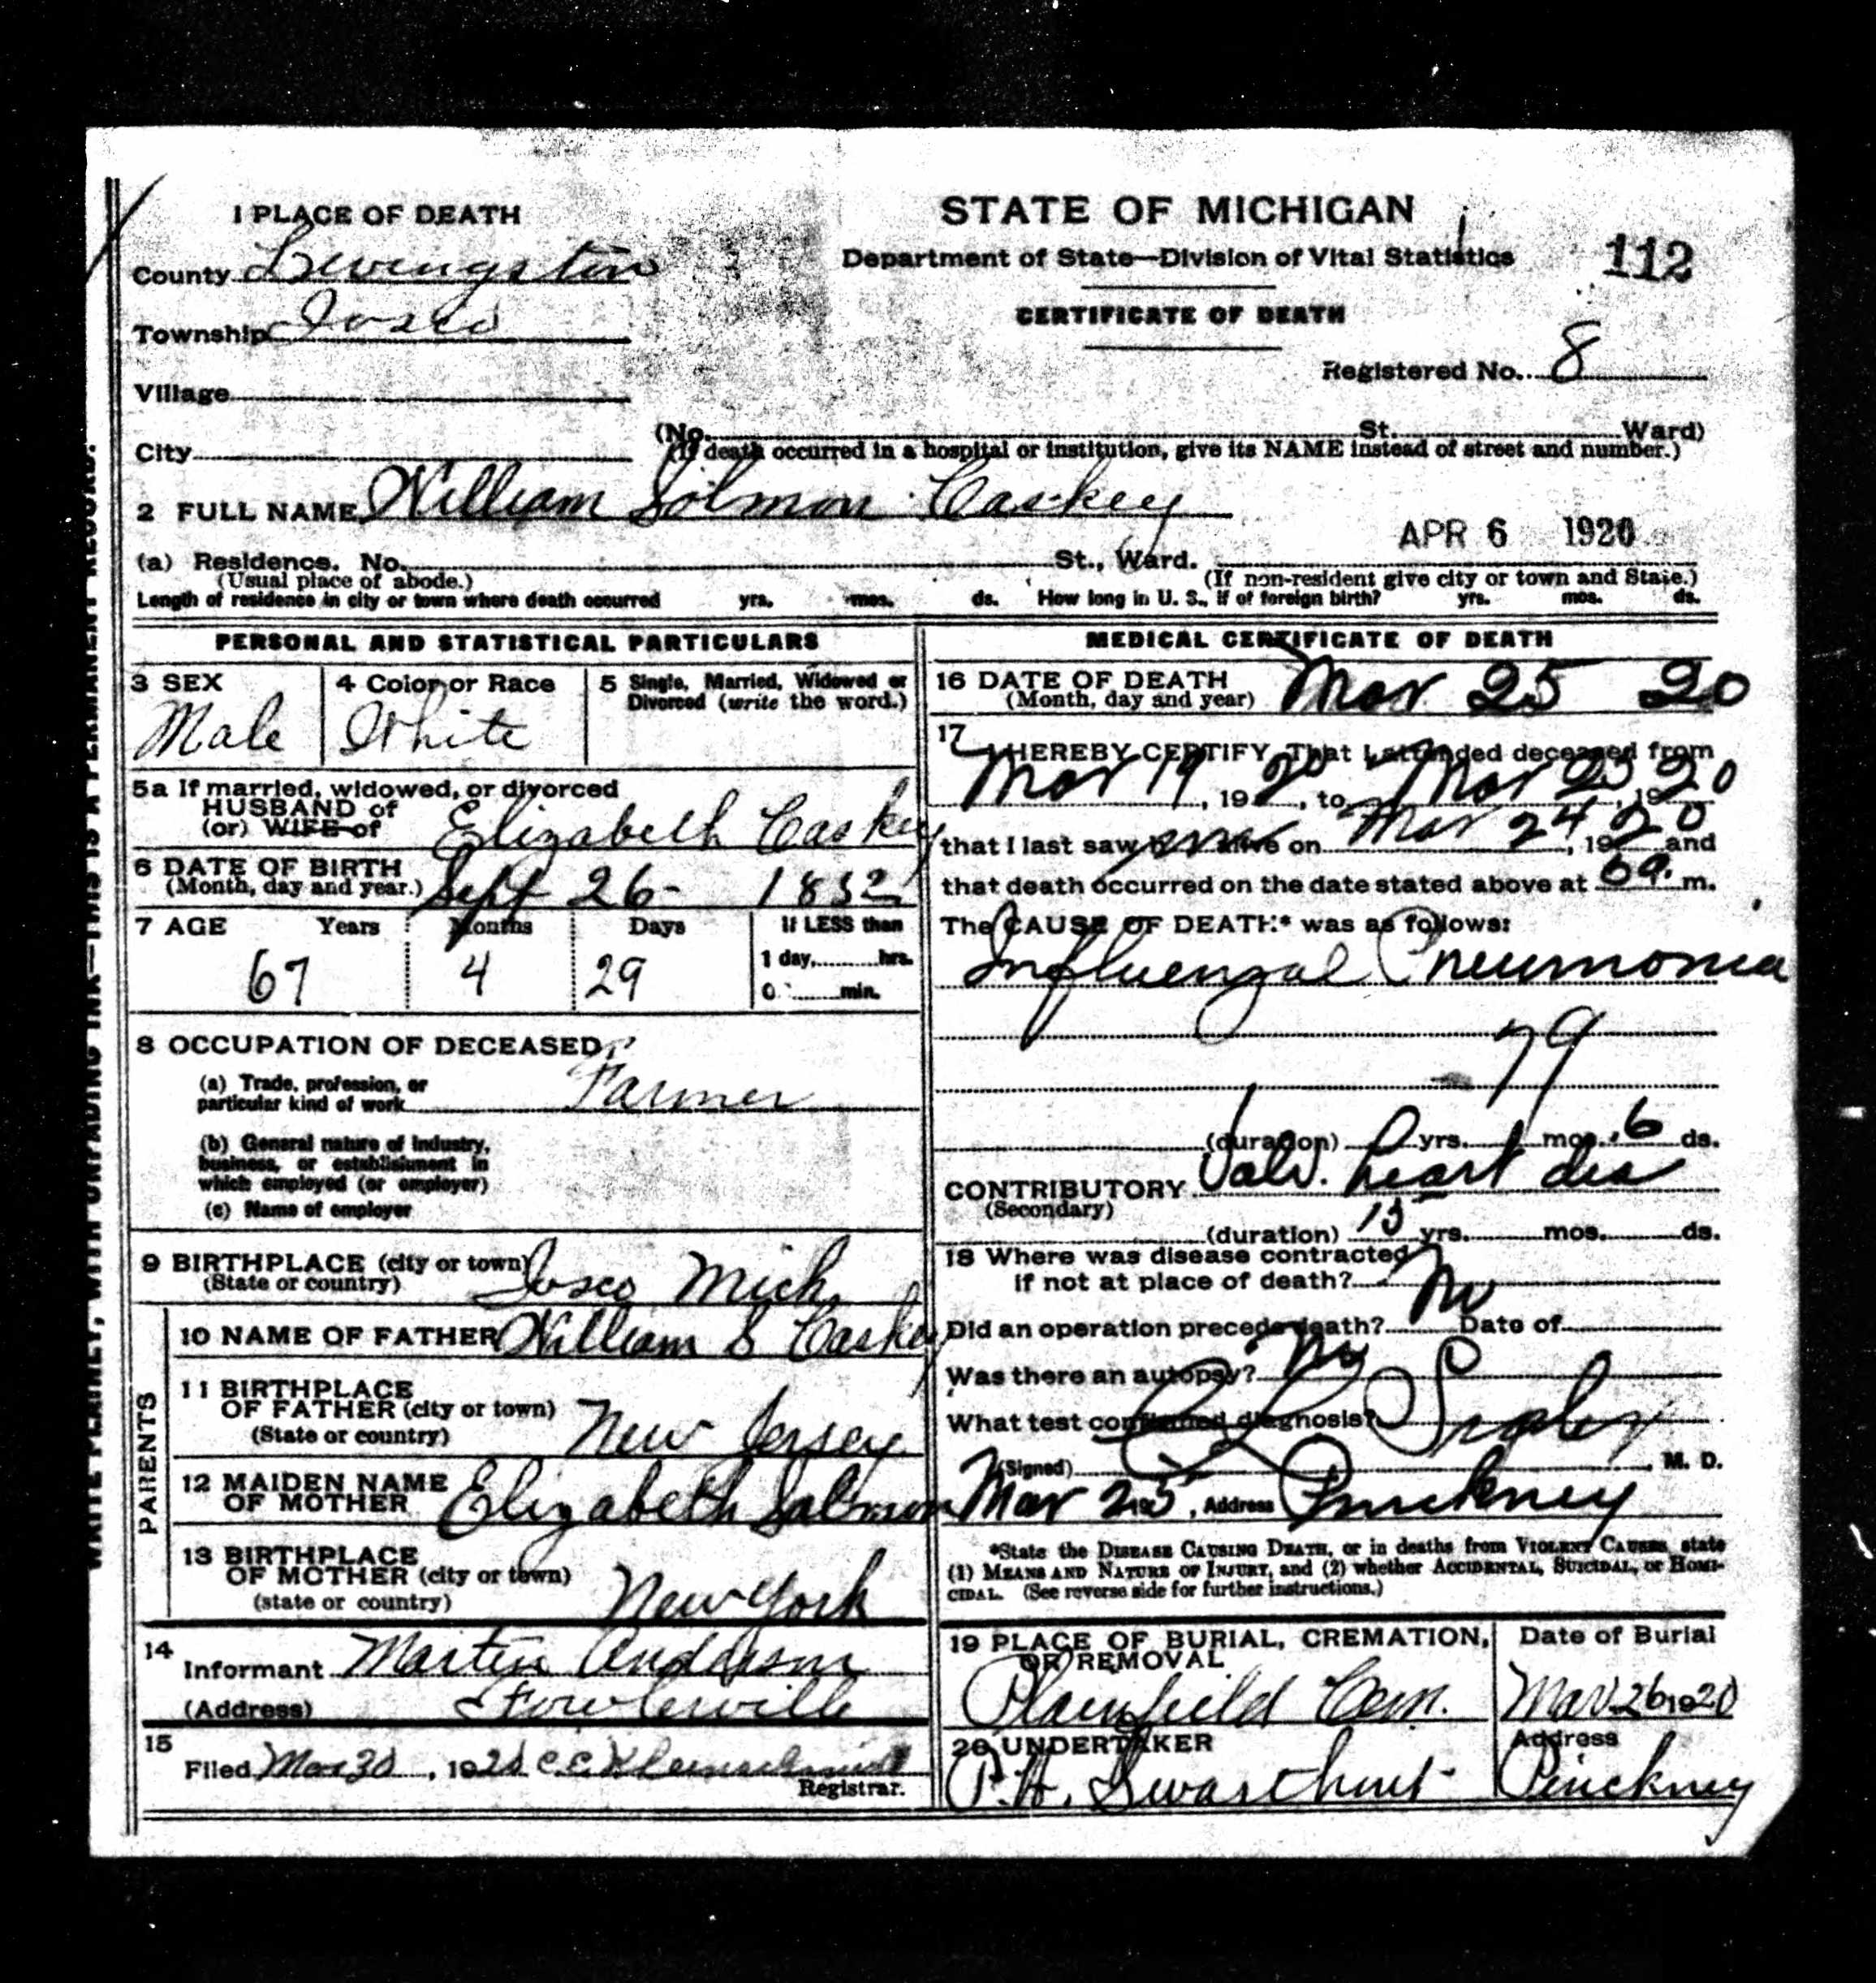 1 PLACE OF DEATH
County Livingston
Township Iosco
Village
City
STATE OF MICHIGAN
Department of State—Division of Vital Statistics
112
CERTIFICATE OF DEATH
Registered No. 8
(No. St. Ward)
(If death occurred in a hospital or institution, give its NAME instead of street and number.)
2 FULL NAME William Solmon Caskey
APR 6 1920
(a) Residence. No. St., Ward.
(Usual place of abode.) (If non-resident give city or town and State.)
Length of residence in city or town where death occurred yrs. mos. ds. How long in U. S., if of foreign birth? yrs. mos. ds.
WRITE PLAINLY, WITH UNFADING INK—THIS IS A PERMANENT RECORD.
PERSONAL AND STATISTICAL PARTICULARS
3 SEX
Male
4 Color or Race
White
5 Single, Married, Widowed or
Divorced (write the word.)
5a If married, widowed, or divorced
HUSBAND of
(or) WIFE of Elizabeth Caskey
6 DATE OF BIRTH
(Month, day and year.) Sept 26 - 1852
7 AGE Years Months Days If LESS than
67 4 29 1 day, hrs.
min.
8 OCCUPATION OF DECEASED
(a) Trade, profession, or
particular kind of work Farmer
(b) General nature of industry,
business, or establishment in
which employed (or employer)
(c) Name of employer
9 BIRTHPLACE (city or town)
(State or country) Iosco Mich.
PARENTS
10 NAME OF FATHER William S Caskey
11 BIRTHPLACE
OF FATHER (city or town)
(State or country) New Jersey
12 MAIDEN NAME
OF MOTHER Elizabeth Salmon
13 BIRTHPLACE
OF MOTHER (city or town)
(state or country) New York
14
Informant Martin Anderson
(Address) Fowlerville
15
Filed Mar 30, 1920 C. E. Kleinschmidt
Registrar.
MEDICAL CERTIFICATE OF DEATH
16 DATE OF DEATH
(Month, day and year) Mar 25 20
17
I HEREBY CERTIFY, That I attended deceased from
Mar 19, 1920, to Mar 25, 1920
that I last saw alive on Mar 24, 1920 and
that death occurred on the date stated above at 6 a. m.
The CAUSE OF DEATH* was as follows:
Influenzal Pneumonia
79
(duration) 0 yrs. mos. 6 ds.
CONTRIBUTORY Valv. heart dis
(Secondary)
(duration) 15 yrs. mos. ds.
18 Where was disease contracted
if not at place of death?
Did an operation precede death? No Date of
Was there an autopsy? No
What test confirmed diagnosis?
(Signed) M. D.
Mar 25, Address Pinckney
*State the DISEASE CAUSING DEATH, or in deaths from VIOLENT CAUSES, state
(1) MEANS AND NATURE OF INJURY, and (2) whether ACCIDENTAL, SUICIDAL, or HOMI-
CIDAL. (See reverse side for further instructions.)
19 PLACE OF BURIAL, CREMATION,
OR REMOVAL
Plainfield Cem.
Date of Burial
Mar 26 1920
20 UNDERTAKER
P. H. Swarthout
Address
Pinckney